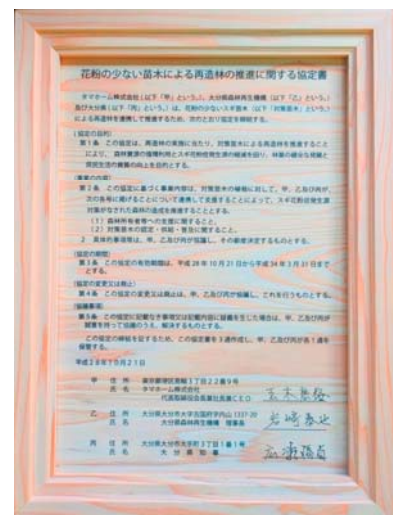 花粉の少ない苗木による再造林の推進に関する協定書
タマホーム株式会社(以下「甲」という。)、大分県森林再生機構(以下「乙」という。)
及び大分県(以下「丙」という。)は、花粉の少ないスギ苗木(以下「対策苗木」という。)
による再造林を連携して推進するため、次のとおり協定を締結する。
(協定の目的)
第1条 この協定は、再造林の実施に当たり、対策苗木による再造林を推進すること
により、森林資源の循環利用とスギ花粉症発生源の縮減を図り、林業の健全な発展と
県民生活の質の向上を目的とする。
(事業の内容)
第2条 この協定に基づく事業内容は、対策苗木の植栽に対して、甲、乙及び丙が、
次の各号に掲げることについて連携して支援することによって、スギ花粉症発生源
対策がなされた森林の造成を推進することとする。
(1)森林所有者等への支援に関すること。
(2)対策苗木の認定・供給・普及に関すること。
2 具体的事項等は、甲、乙及び丙が協議し、その都度決定するものとする。
(協定の期間)
第3条 この協定の有効期間は、平成28年10月21日から平成34年3月31日まで
とする。
(協定の変更又は廃止)
第4条 この協定の変更又は廃止は、甲、乙及び丙が協議し、これを行うものとする。
(協議事項)
第5条 この協定に記載なき事項又は記載内容に疑義を生じた場合は、甲、乙及び丙が
誠意を持って協議のうえ、解決するものとする。
この協定の締結を証するため、この協定書を3通作成し、甲、乙及び丙が各1通を
保管する。
平成28年10月21日
甲 住所 東京都港区高輪3丁目22番9号
氏名 タマホーム株式会社
代表取締役会長兼社長兼CEO 玉木康裕
乙 住所 大分県大分市大字古国府字内山1337-20
氏名 大分県森林再生機構 理事長
丙 住所 大分県大分市大手町3丁目1番1号
氏名 大分県知事 広瀬勝貞